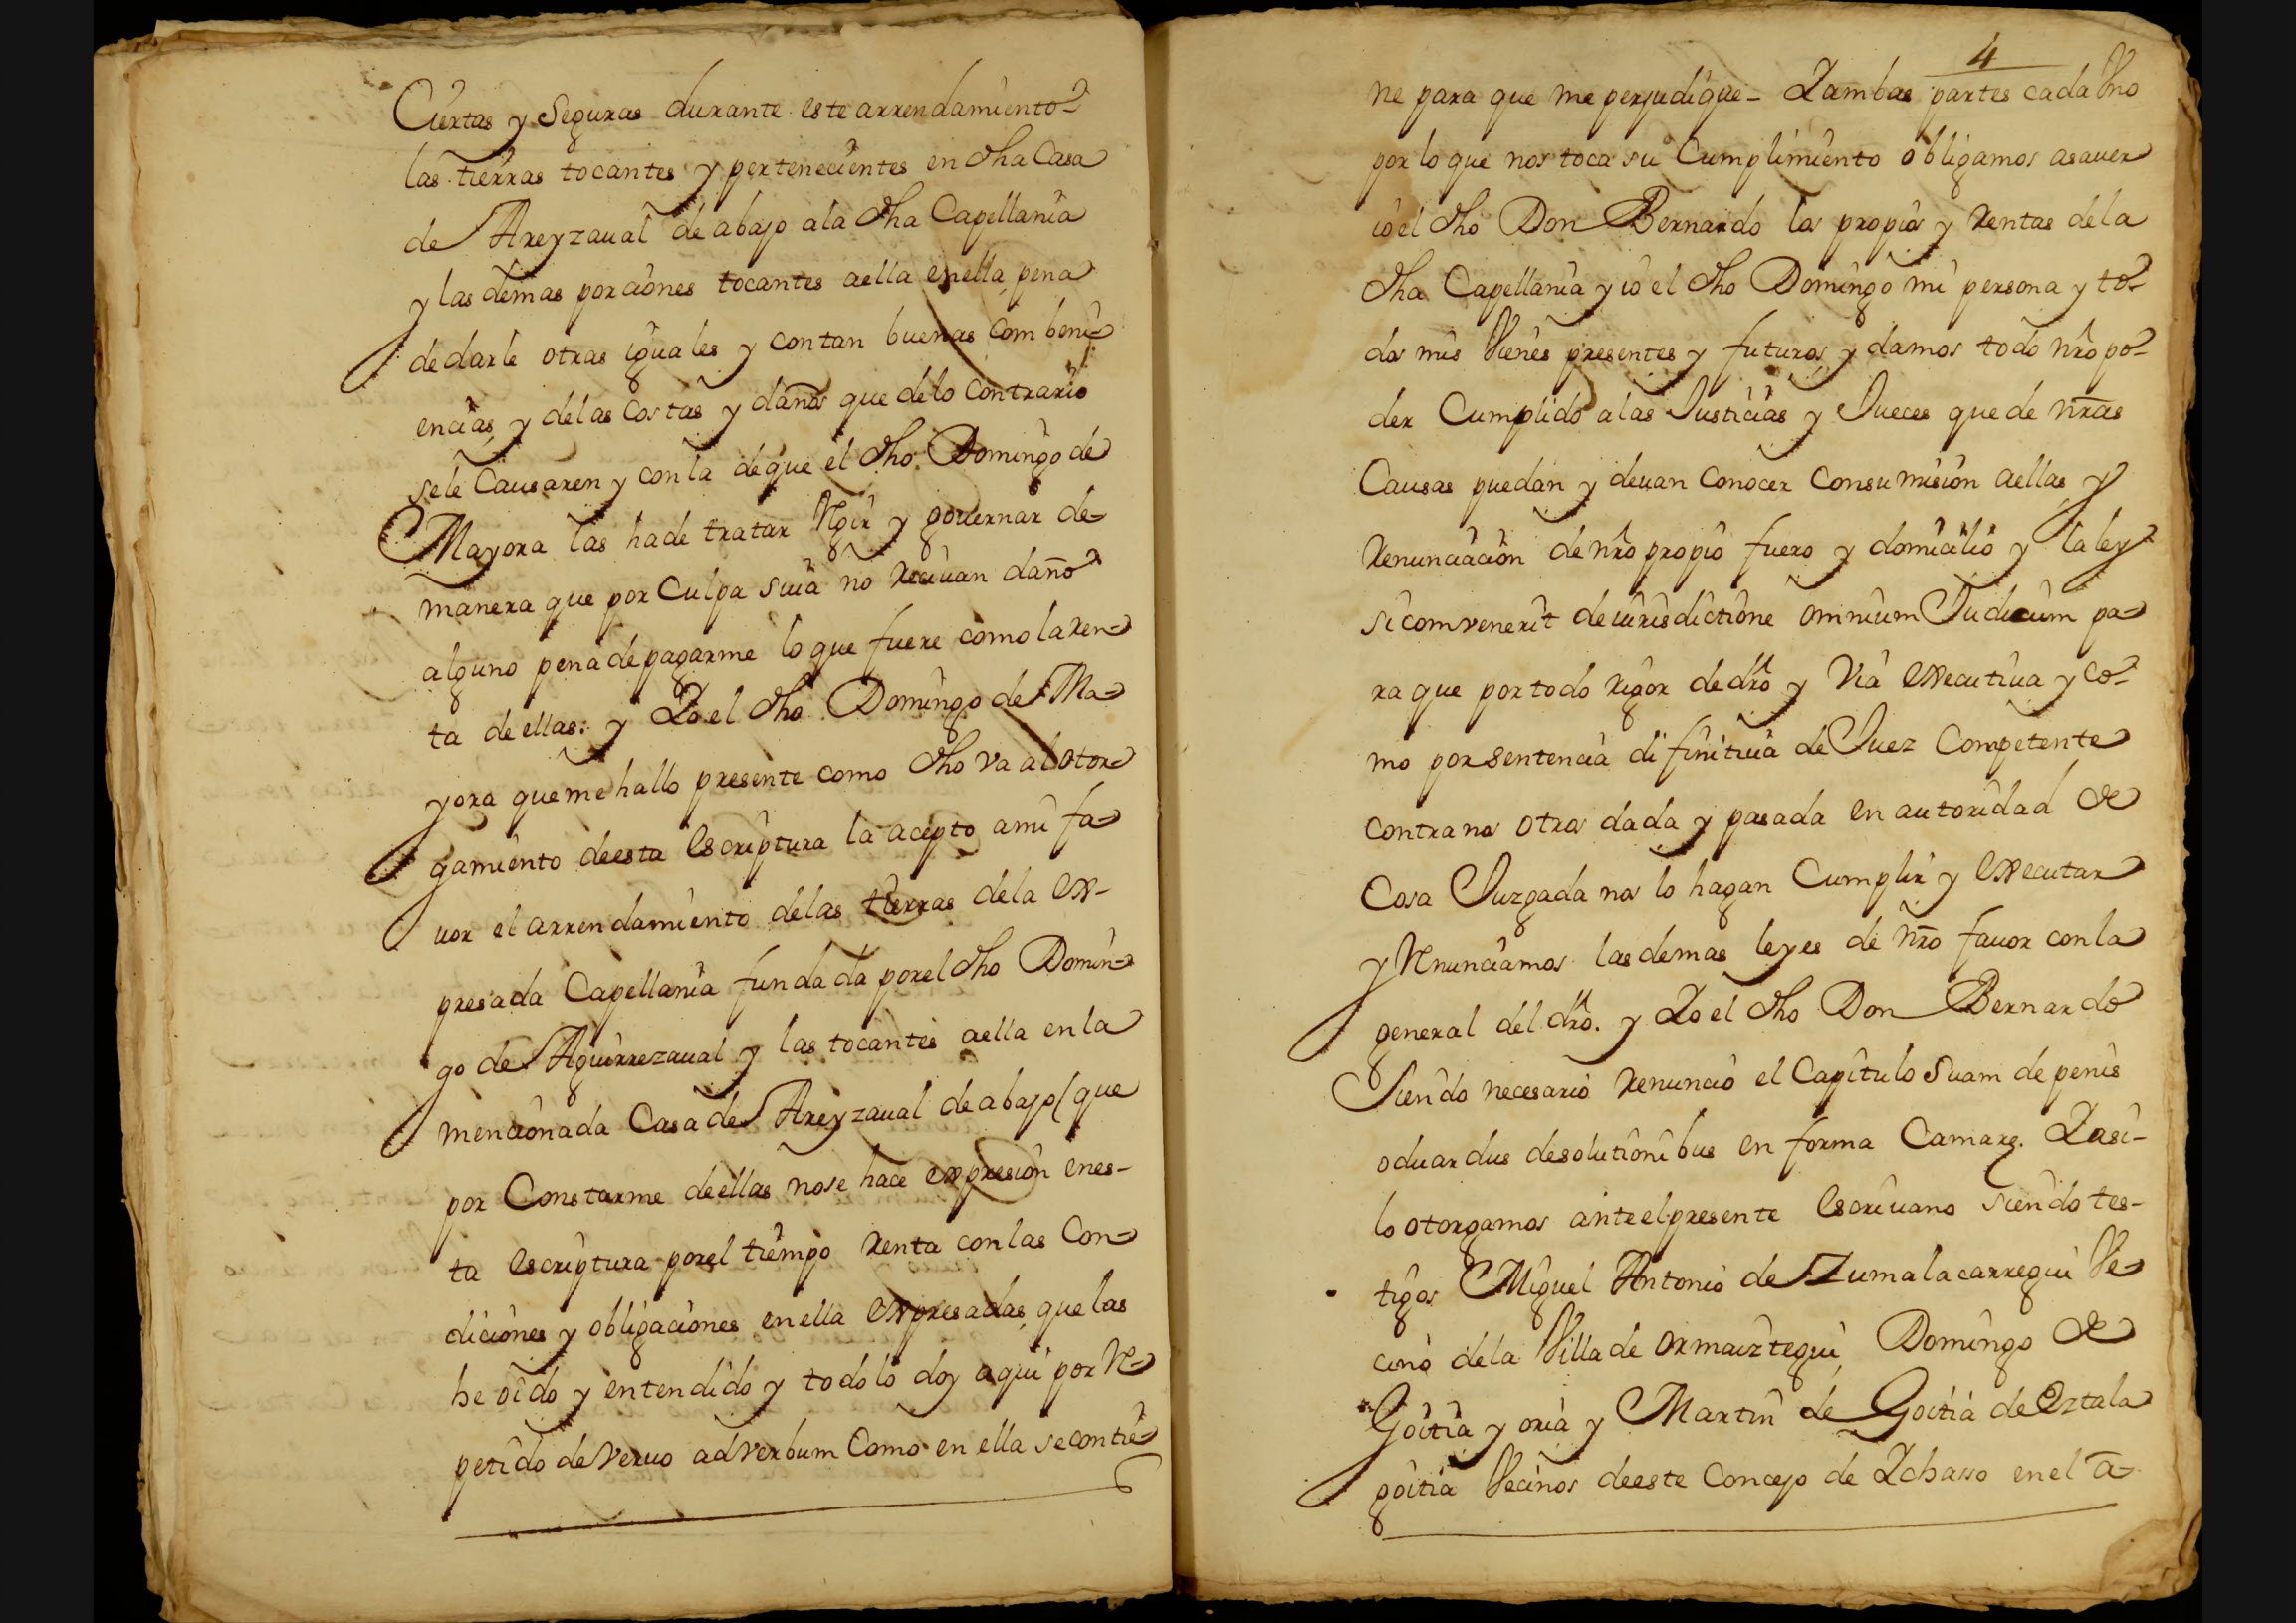 Ciertas y Seguras durante este arrendamiento
las tierras tocantes y pertenecientes en dha Casa
de Areyzaual de abajo ala dha Capellania
y las demas porciones tocantes aella enella, pena
de darle otras iguales y contan buenas combeni-
encias, y delas Costas y daños que delo Contrario
sele Causaren y con la de que el dho Domingo de
Mayora las hade tratar Regir y gouernar de-
manera que por Culpa suia no Reciuan daño
alguno pena de pagarme lo que fuere como la ren-
ta de ellas: y Yo el dho Domingo de Ma-
yora que me hallo presente como dho va al otor-
gamiento deesta Escriptura la acepto ami fa-
uor el arrendamiento delas tierras dela ex-
presada Capellania fundada porel dho Domin-
go de Aguirrezaual y las tocantes aella en la
mencionada Casa de Areyzaual de abajo (que
por Constarme deellas nose hace expresion enes-
ta escriptura porel tiempo Renta con las Con-
diciones y obligaciones enella expresadas, que las
he oido y entendido y todo lo doy aqui por Re-
petido de Veruo adverbum Como en ella se contie-
4
ne para que me perjudique - Yambas partes cada Vno
por lo que nos toca su Cumplimiento obligamos asauer
io el dho Don Bernardo los propios y Rentas dela
dha Capellania y io el dho Domingo mi persona y to-
dos mis Vienes presentes y futuros, y damos todo nro po-
der Cumplido alas Justicias y Jueces que de nras
Causas puedan y deuan Conocer Consumision aellas, y
Renunciacion de nro propio fuero y domicilio y la ley
sicomvenerit de iurisdictione omnium Judicum pa-
ra que por todo rigor de dro y Via executiua y co-
mo por sentencia difinitiua de Juez Competente
contra nos otros dada y pasada en autoridad de
Cosa Juzgada nos lo hagan Cumplir y executar
y Renunciamos las demas leyes de nro fauor con la
general del dro. y Yo el dho Don Bernardo
Siendo necesario Renuncio el Capitulo Suam de penis
oduardus desolutionibus en forma Camare. Yasi-
lo otorgamos ante el presente Escriuano siendo tes-
tigos Miguel Antonio de Zumalacarregui Ve-
cino dela Villa de ormaiztegui, Domingo de
Goitia y oria y Martin de Goitia de Eztala
goitia Vecinos deeste Concejo de Ychasso en el a-